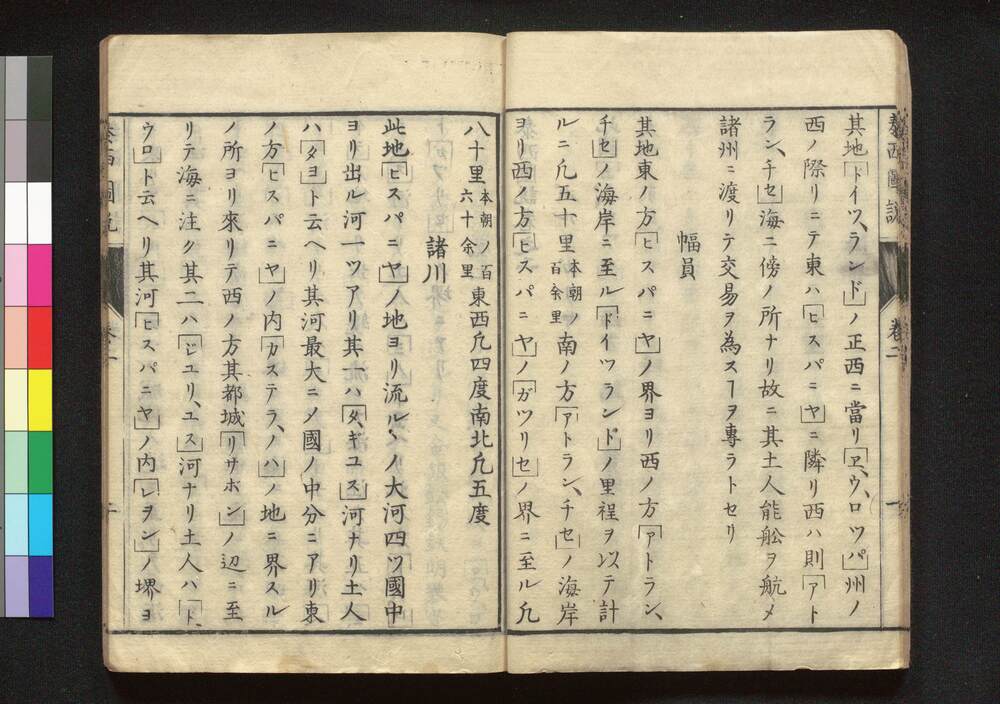 泰西圖説
卷二
一
其地「ドイツ、ランド」ノ正西ニ當リ「ヱ、ウ、ロツパ」州ノ
西ノ際リニテ東ハ「ヒスパニヤ」ニ隣リ西ハ則「アト
ラン、チセ」海ニ傍ノ所ナリ故ニ其土人能舩ヲ航メ
諸州ニ渡リテ交易ヲ為スヿヲ專ラトセリ
幅員
其地東ノ方「ヒスパニヤ」ノ界ヨリ西ノ方「アトラン、
チセ」ノ海岸ニ至ル「ドイツランド」ノ里程ヲ以テ計
ルニ凡五十里本朝ノ百余里南ノ方「アトラン、チセ」ノ海岸
ヨリ西ノ方「ヒスパニヤ」ノ「ガツリセ」ノ界ニ至ル凡
八十里本朝ノ百六十余里東西凡四度南北凡五度
諸川
此地「ヒスパニヤ」ノ地ヨリ流ルヽノ大河四ツ國中
ヨリ出ル河一ツアリ其一ハ「タ、ギユス」河ナリ土人
ハ「タヨ」ト云ヘリ其河最大ニメ國ノ中分ニアリ東
ノ方「ヒスパニヤ」ノ内「カステラ、ノハ」ノ地ニ界スル
ノ所ヨリ來リテ西ノ方其都城「リサホン」ノ辺ニ至
リテ海ニ注ク其二ハ「ジユリ、ユス」河ナリ土人ハ「ト、
ウロ」ト云ヘリ其河「ヒスパニヤ」ノ内「レヲン」ノ堺ヨ